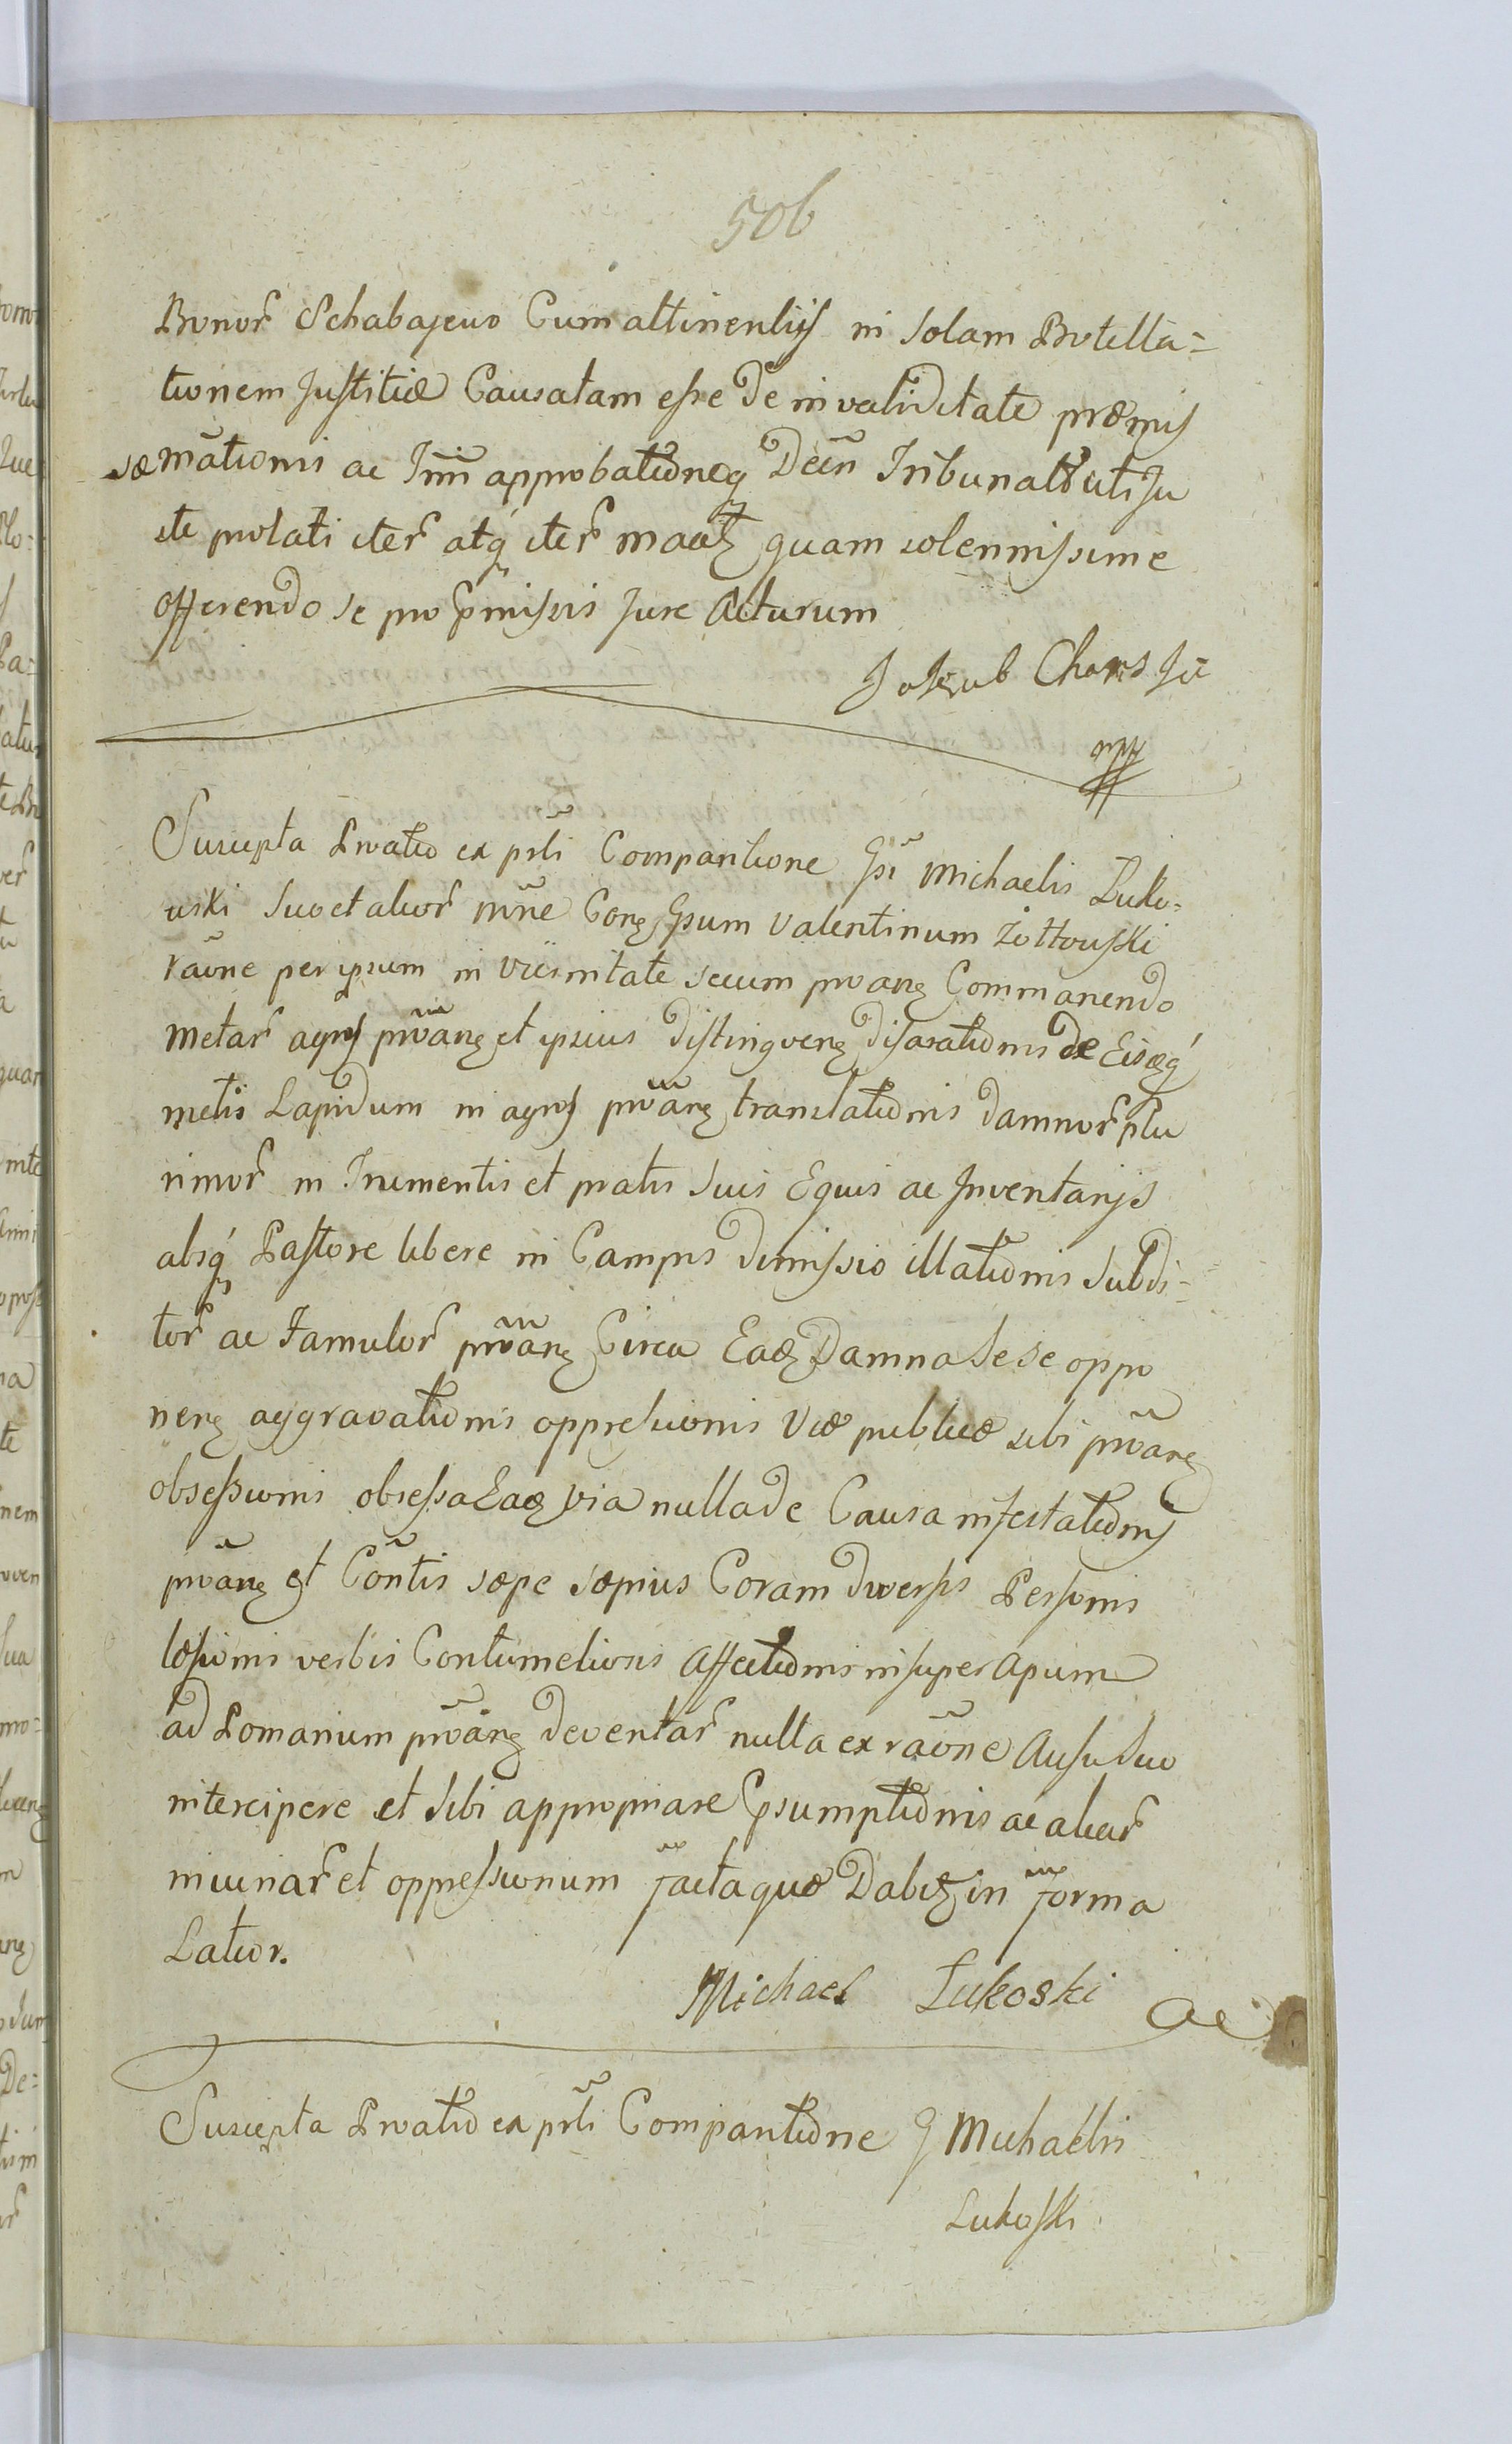 506
Bonor̃ Schabajewo Cum attinentijs in solam Protella=
tionem Justitiæ Causatam esse De invaliditate præmis
sæ mãtionis ac Imi approbationeq Decñ Tribunalr̃ uti Ju
ste prolati iter̃ atq́ iter̃ maõtʒ quam solennissime
offerendo se pro p̃missis Jure Acturum
Jakub Chars
mpp
Suscepta Prõatio ex prl̃i Comparitione Gsi Michaelis Luko=
uski suo et alior̃ nm̃e Conʒ Gsum Valentinum Żółtouski
raõne per ipsum in viĩsnitate secum proanʒ Commanendo
metar̃ agros prõanʒ et ipsius distingvenʒ disaratiõnis de Eisdq́
metis Lapidum in agros prõanʒ translatiõnis damnor̃ plu
rimor̃ in Frumentis et pratis suis Equis ac Inventarijs
absq́ Pastore libere in Campis dimissio illatiõnis Subdi=
tor̃ ac Famulor̃ prõanʒ Circa Eadʒ Damna Sese oppo
nenʒ aggravatiõnis oppressionis Viæ publicæ sibi prõanʒ
obsessionis obsessa Eadʒ via nulla de Causa infestatiõnis
prõanʒ et Cõntis sæpe sæpius Coram diversis Personis
læsionis verbis Contumeliosis Affectiõnis insuper Apum
ad Pomarium prõanʒ deventar̃ nulla ex raõne Ausu suo
intercipere et sibi appropriare Gsumptiõnis ac aliar̃
iniuriar̃ et oppressionum facta quæ Dabitʒ in forma
Latior.
Michael Lukoski
Suscepta Prõatio ex prl̃i Comparitiõne G Michaelis
Lukoski